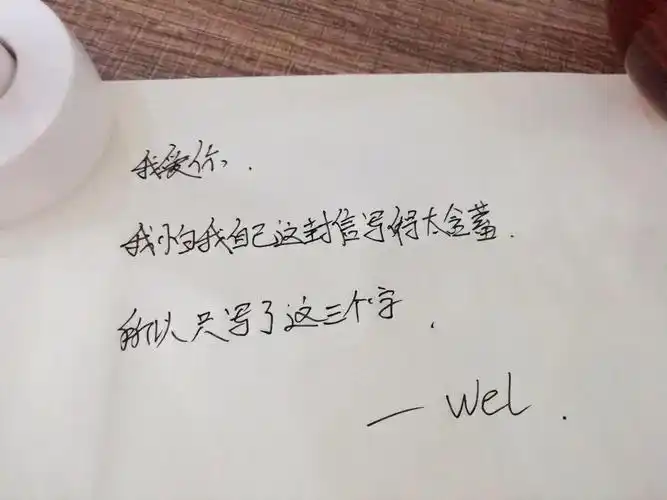 我爱你.
我怕我自己这封信写得太含蓄.
所以只写了这三个字.
— Wel.